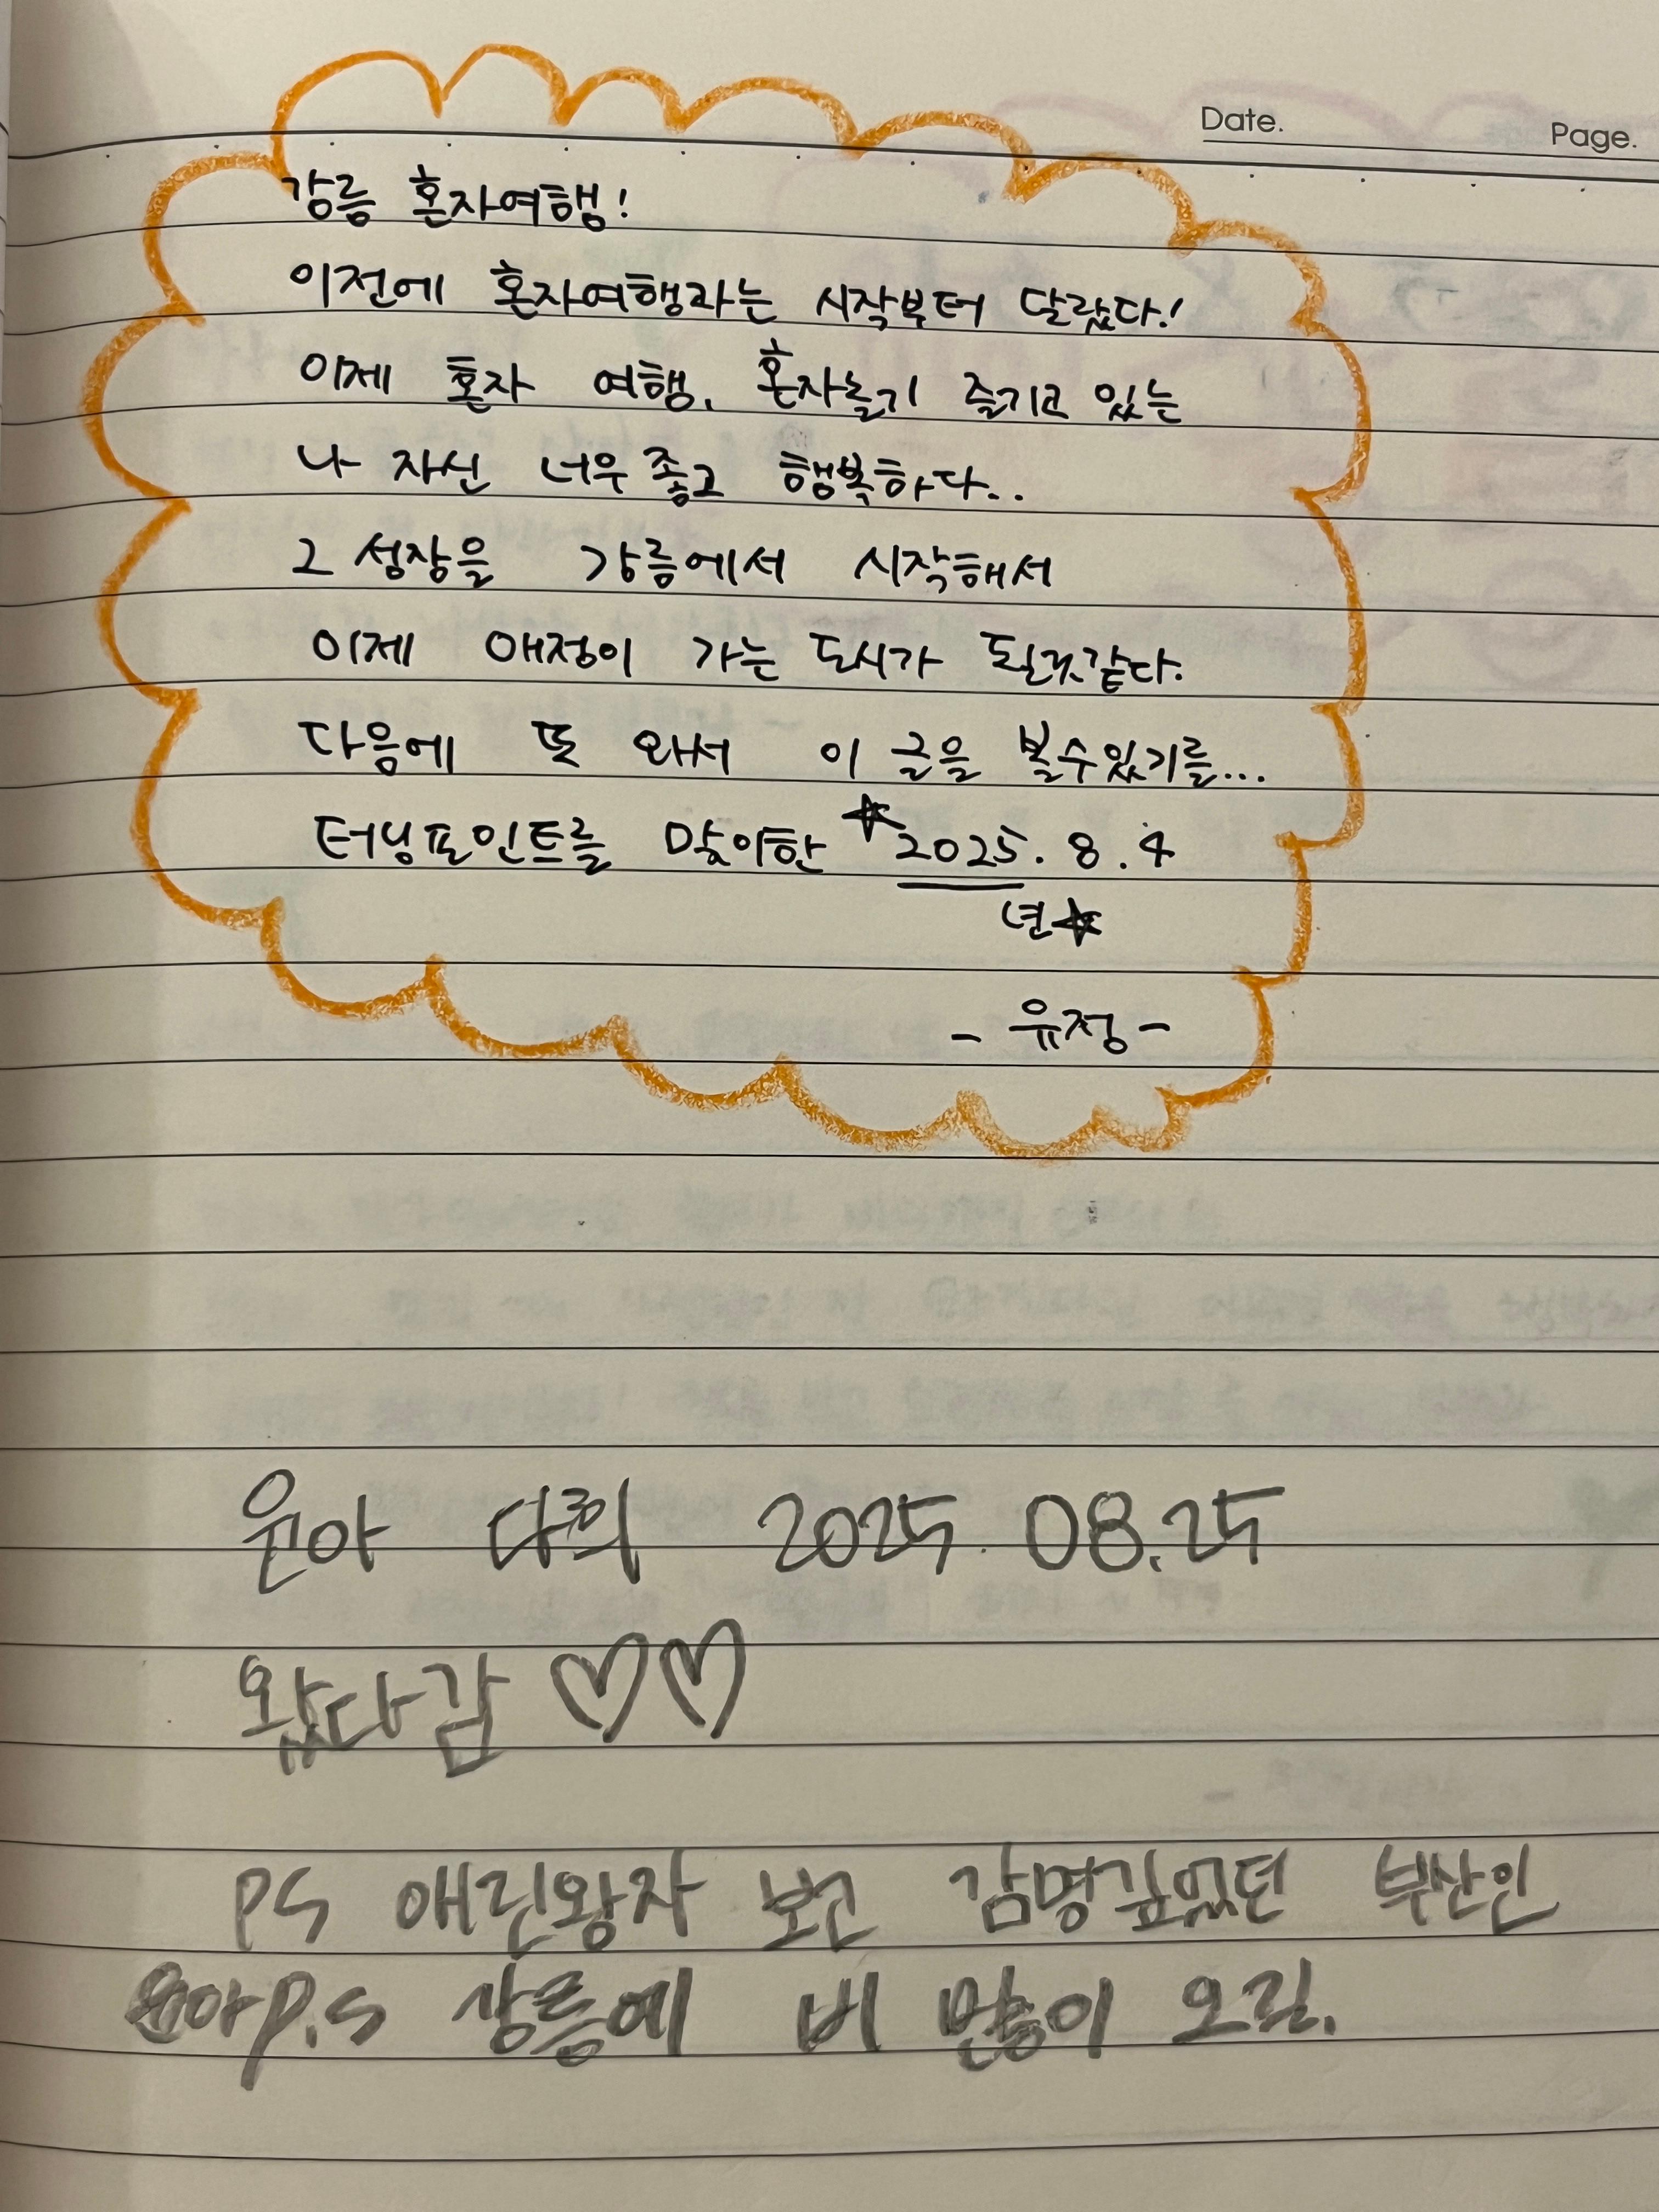 Date.
Page.
강릉 혼자여행!
이전에 혼자여행과는 시작부터 달랐다!
이제 혼자 여행, 혼자놀기 즐기고 있는
나 자신 너무 좋고 행복하다..
그 성장을 강릉에서 시작해서
이제 애정이 가는 도시가 된것같다.
다음에 또 와서 이 글을 볼수있기를...
터닝포인트를 맞이한 ★2025. 8. 4
년★
- 유정 -
윤아 다희 2025. 08.25
왔다감 ♡♡
PS 애린왕자 보고 감명깊었던 부산인
윤아 P.S 강릉에 비 많이 오길.